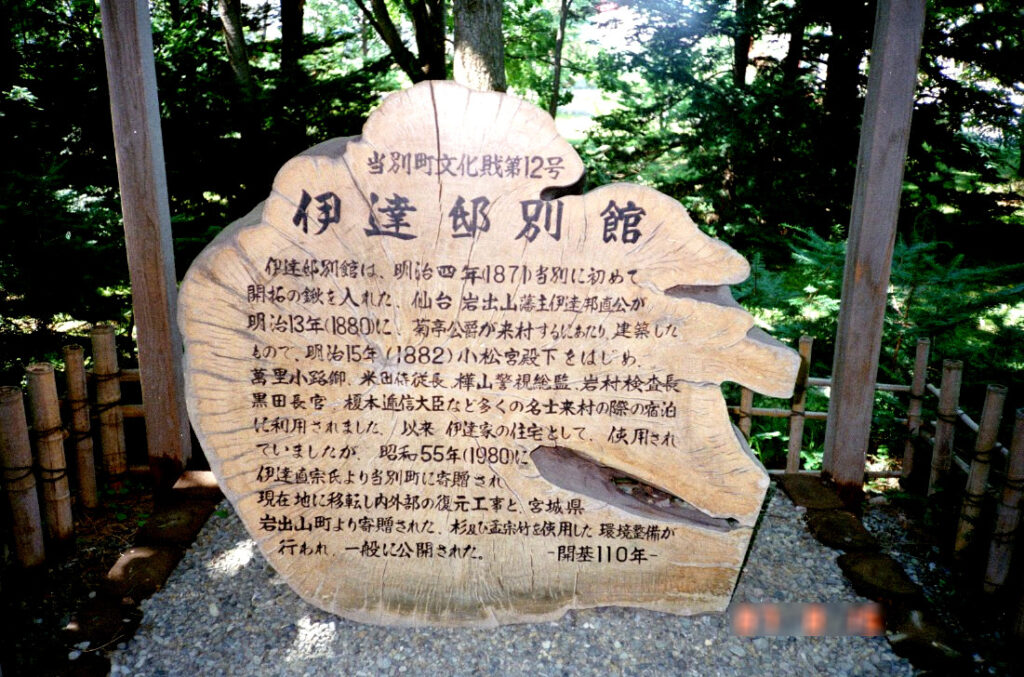 当別町文化財第12号
伊達邸別館
伊達邸別館は、明治四年(1871)当別に初めて
開拓の鍬を入れた、仙台岩出山藩主伊達邦直公が
明治13年(1880)に、菊亭公爵が来村するにあたり、建築した
もので、明治15年(1882)小松宮殿下をはじめ、
萬里小路卿、米田侍従長、樺山警視総監、岩村検査長
黒田長官、榎本逓信大臣など多くの名士来村の際の宿泊
に利用されました。以来伊達家の住宅として、使用され
ていましたが、昭和55年(1980)に
伊達直宗氏より当別町に寄贈され
現在地に移転し内外部の復元工事と、宮城県
岩出山町より寄贈された、杉及び孟宗竹を使用した環境整備が
行われ、一般に公開された。 -開基110年-